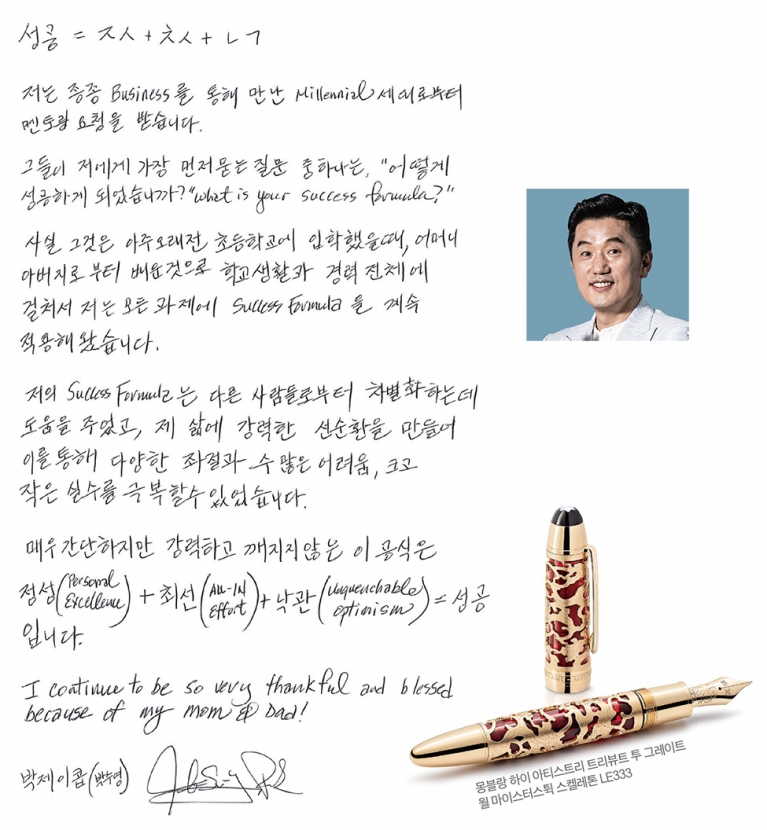 성공 = ㅈㅅ + ㅊㅅ + ㄴㄱ
저는 종종 Business를 통해 만난 Millennial 세대로부터
멘토링 요청을 받습니다.
그들이 저에게 가장 먼저 묻는 질문 중 하나는, "어떻게
성공하게 되었습니까? "What is your success formula?"
사실 그것은 아주 오래전 초등학교에 입학했을때, 어머니
아버지로부터 배운것으로 학교생활과 경력 전체에
걸쳐서 저는 모든 과제에 Success Formula 을 계속
적용해 왔습니다.
저의 Success Formula 는 다른 사람들로부터 차별화 하는데
도움을 주었고, 제 삶에 강력한 선순환을 만들어
이를 통해 다양한 좌절과 수 많은 어려움, 크고
작은 실수를 극복할수 있었습니다.
매우 간단하지만 강력하고 깨지지않는 이 공식은
정성(Personal Excellence) + 최선(All-IN Effort) + 낙관(unquenchable optimism) = 성공
입니다.
I continue to be so very thankful and blessed
because of my mom & Dad!
박제이콥(박수영)
몽블랑 하이 아티스트리 트리뷰트 투 그레이트
월 마이스터스튁 스켈레톤 LE333